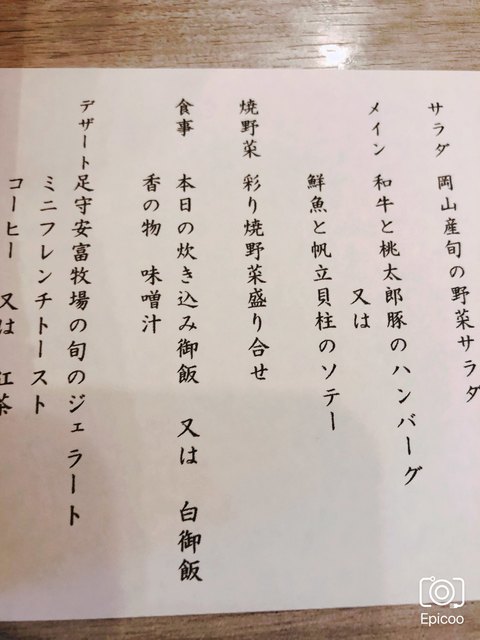 サラダ 岡山産旬の野菜サラダ
メイン 和牛と桃太郎豚のハンバーグ
又は
鮮魚と帆立貝柱のソテー
焼野菜 彩り焼野菜盛り合せ
食事 本日の炊き込み御飯 又は 白御飯
香の物 味噌汁
デザート 足守安富牧場の旬のジェラート
ミニフレンチトースト
コーヒー 又は 紅茶
Epicoo